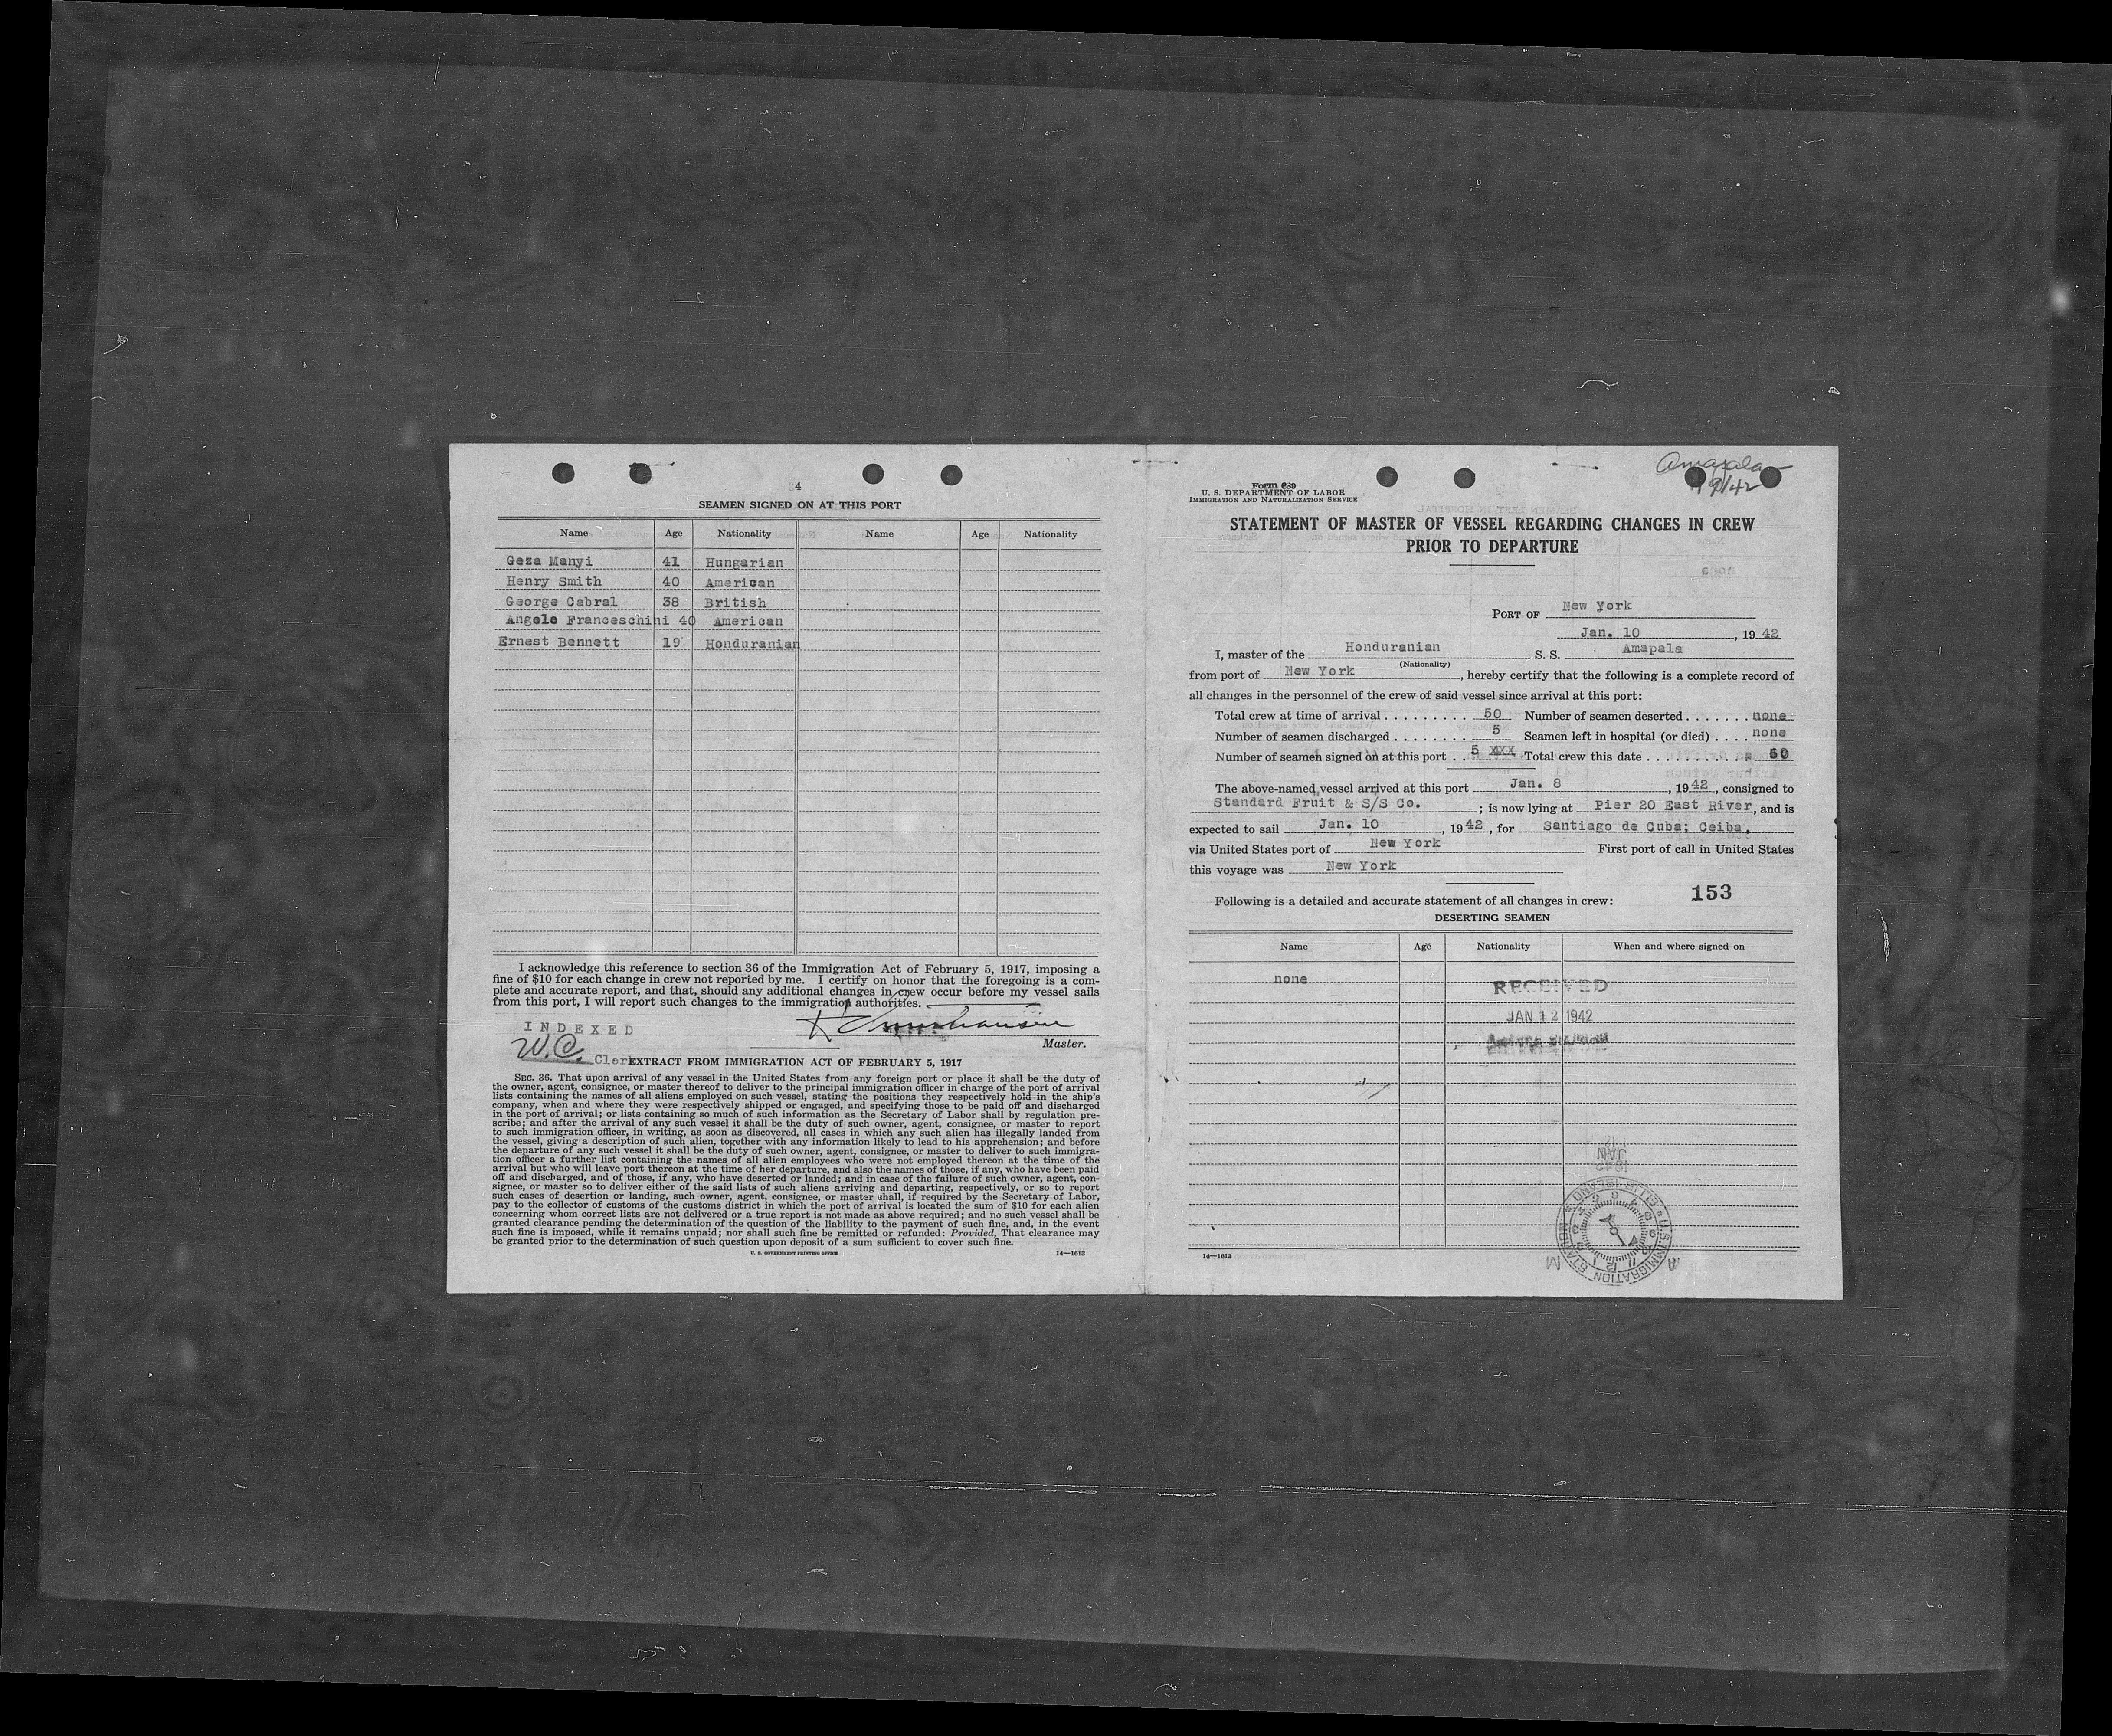 4
SEAMEN SIGNED ON AT THIS PORT
Name Age Nationality Name Age Nationality
Geza Manyi 41 Hungarian
Henry Smith 40 American
George Cabral 38 British
Angelo Franceschini 40 American
Ernest Bennett 19 Honduranian
I acknowledge this reference to section 36 of the Immigration Act of February 5, 1917, imposing a
fine of $10 for each change in crew not reported by me. I certify on honor that the foregoing is a com-
plete and accurate report, and that, should any additional changes in crew occur before my vessel sails
from this port, I will report such changes to the immigration authorities.
INDEXED
Master.
W.C. Clerk
EXTRACT FROM IMMIGRATION ACT OF FEBRUARY 5, 1917
SEC. 36. That upon arrival of any vessel in the United States from any foreign port or place it shall be the duty of
the owner, agent, consignee, or master thereof to deliver to the principal immigration officer in charge of the port of arrival
lists containing the names of all aliens employed on such vessel, stating the positions they respectively hold in the ship's
company, when and where they were respectively shipped or engaged, and specifying those to be paid off and discharged
in the port of arrival; or lists containing so much of such information as the Secretary of Labor shall by regulation pre-
scribe; and after the arrival of any such vessel it shall be the duty of such owner, agent, consignee, or master to report
to such immigration officer, in writing, as soon as discovered, all cases in which any such alien has illegally landed from
the vessel, giving a description of such alien, together with any information likely to lead to his apprehension; and before
the departure of any such vessel it shall be the duty of such owner, agent, consignee, or master to deliver to such immigra-
tion officer a further list containing the names of all alien employees who were not employed thereon at the time of the
arrival but who will leave port thereon at the time of her departure, and also the names of those, if any, who have been paid
off and discharged, and of those, if any, who have deserted or landed; and in case of the failure of such owner, agent, con-
signee, or master so to deliver either of the said lists of such aliens arriving and departing, respectively, or so to report
such cases of desertion or landing, such owner, agent, consignee, or master shall, if required by the Secretary of Labor,
pay to the collector of customs of the customs district in which the port of arrival is located the sum of $10 for each alien
concerning whom correct lists are not delivered or a true report is not made as above required; and no such vessel shall be
granted clearance pending the determination of the question of the liability to the payment of such fine, and, in the event
such fine is imposed, while it remains unpaid; nor shall such fine be remitted or refunded: Provided, That clearance may
be granted prior to the determination of such question upon deposit of a sum sufficient to cover such fine.
U. S. GOVERNMENT PRINTING OFFICE 14—1613
Amapala
1/9/42
Form 689
U. S. DEPARTMENT OF LABOR
IMMIGRATION AND NATURALIZATION SERVICE
STATEMENT OF MASTER OF VESSEL REGARDING CHANGES IN CREW
PRIOR TO DEPARTURE
PORT OF New York
Jan. 10, 1942
I, master of the Honduranian S. S. Amapala
(Nationality)
from port of New York, hereby certify that the following is a complete record of
all changes in the personnel of the crew of said vessel since arrival at this port:
Total crew at time of arrival . . . . . . . . . 50 Number of seamen deserted . . . . . . . none
Number of seamen discharged . . . . . . . . 5 Seamen left in hospital (or died) . . . . none
Number of seamen signed on at this port . . 5 xxx Total crew this date . . . . . . . . . . 50
The above-named vessel arrived at this port Jan. 8, 1942, consigned to
Standard Fruit & S/S Co.; is now lying at Pier 20 East River, and is
expected to sail Jan. 10, 1942, for Santiago de Cuba; Ceiba.
via United States port of New York First port of call in United States
this voyage was New York
153
Following is a detailed and accurate statement of all changes in crew:
DESERTING SEAMEN
Name Age Nationality When and where signed on
none
RECEIVED
JAN 12 1942
1942
JAN
12
U.S. IMMIGRATION STATION ELLIS ISLAND
A M
14—1613